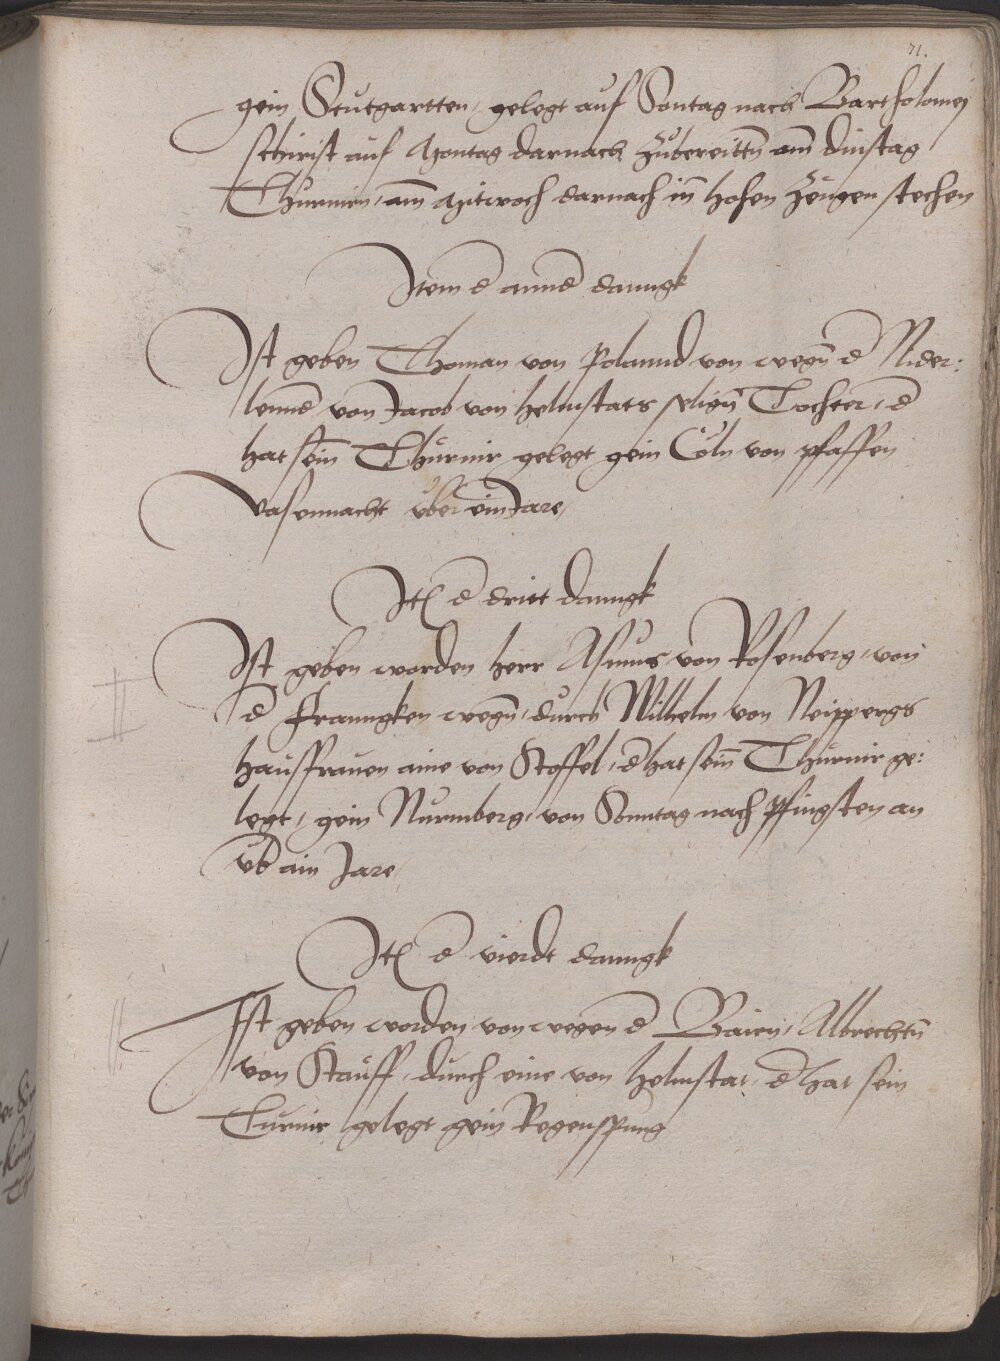 71.
gein Stutgartten / gelegt auf Sontag nach Bartholomej
schirist auf Montag darnach zubereittn̄ am̄ dinstag
Thurnirn / am̄ Mitwoch darnach in̄ hohen zeugen stechen
Item d annd danngk
Ist geben Thoman von Polannd von wegn̄ d Nider:
lennd von Jacob von helmstats selign̄ Tochter / d
hat sein̄ Thurnir gelegt gein Cöln von pfaffen
Vasennacht vber ein Jare /
Itē d dritt danngk
Ist geben worden herr Asmus von Rosenberg / von
d Franngken wegn̄ / durch Wilhelm von Neippergs
hausfrauen aine von Stoffel / d hat sein̄ Thurnir ge:
legt / gein Nurmberg / von Sonntag nach Pfingsten an
vb ain Jare /
Itē d vierdt danngk
Ist geben worden von wegen d Baiern / Albrechtn̄
von Stauff / durch eine von helmstat / d hat sein
Turnir gelegt gein Regenspurg